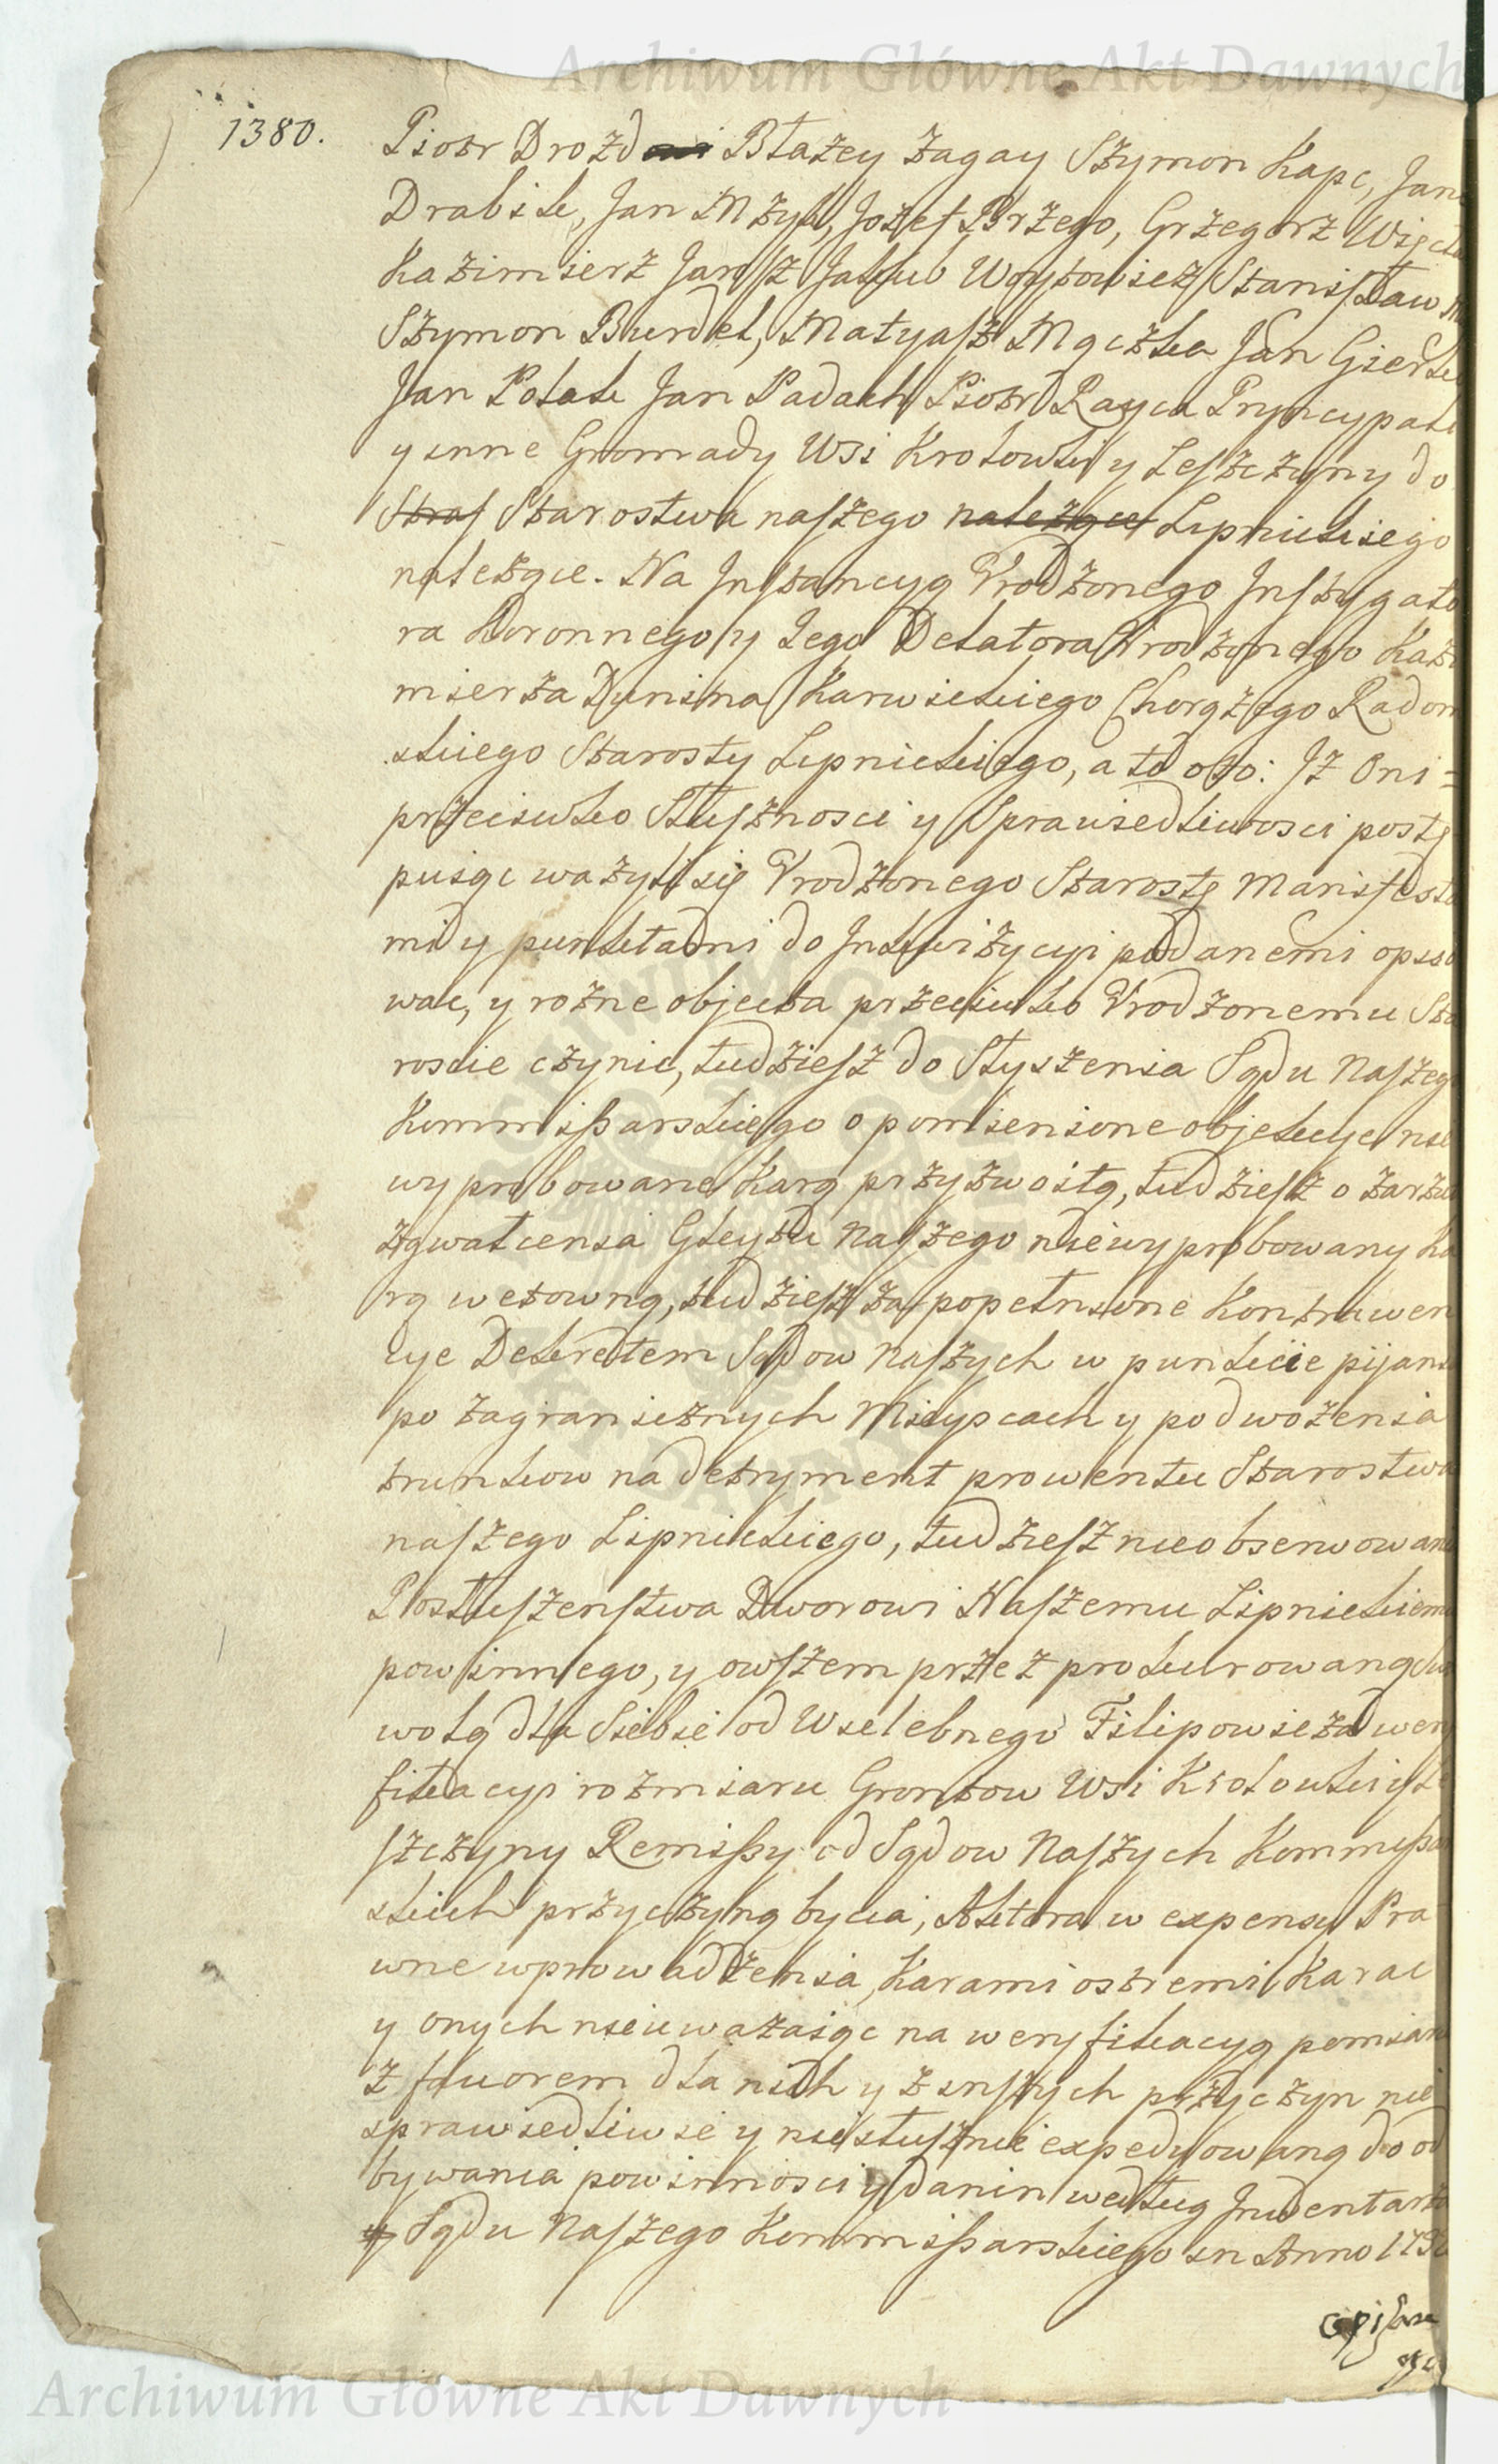 Archiwum Główne Akt Dawnych
1380.
Piotr Drozd Błażey Zagay Szymon Kapc, Jan
Drabik, Jan Mzyk, Jozef Brzego, Grzegorz
Kazimierz Jarosz Jakub Woytowicz Stanisław
Szymon Burdel, Matyasz Mączka Jan
Jan Polak Jan Padach Piotr Rayca Pryncypali
y inne Gromady Wsi Krolowki y Leszczyny do
Staros Starostwa naszego należące Lipnickiego
należące. Na Instancyą Vrodzonego Instygato
ra Koronnego y Iego Delatora Vrodzonego Kazi
mierza Dunina Karwickiego Chorążego Radom
skiego Starosty Lipnickiego, a to oto: Iż Oni =
przeciwko Słuszności y Sprawiedliwosci postę
puiąc ważyli się Vrodzonego Starostę Manifesta
mi y punktami do Inkwizycyi podanemi opiso
wać, y rożne objecta przeciwko Vrodzonemu Sta
roscie czynić, tudziesz do Słyszenia Sądu Naszego
Kommissarskiego o pomienione objekcye nie
wyprobowane Karą przyzwoitą, tudziesz o zarzut
zgwałcenia Gleytu Naszego niewyprobowany Ka
rą wetowną, tudziesz za popełnione Kontrawen
cye Dekretem Sądow Naszych w punkcie pijans
po zagranicznych Mieyscach y podwożenia
trunkow na detryment prowentu Starostwa
naszego Lipnickiego, tudziesz nieobserwowane
Posłuszenstwa Dworowi Naszemu Lipnickiemu
powinnego, y owszem przez prokurowaną
wolą dla Siebie od Wielebnego Filipowicza wery
fikacyi rozmiaru Grontow Wsi Krolowki y Le
szczyny Remissy od Sądow Naszych Kommissar
skich przyczyną bycia, Aktora w expensa Pra
wne wprowadzenia, Karami ostremi Karać
y onych nieuważaiąc na weryfikacyą pomiaru
z faworem dla nich y z inszych przyczyn nie
sprawiedliwie y niesłusznie expedyowaną do od
bywania powinnosci y danin według Inwentarza
Sądu Naszego Kommissarskiego in Anno
Archiwum Główne Akt Dawnych